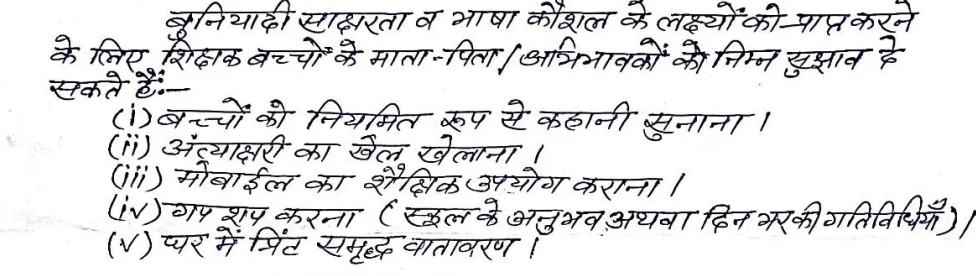 बुनियादी साक्षरता व भाषा कौशल के लक्ष्यों को प्राप्त करने
के लिए शिक्षक बच्चों के माता-पिता/अभिभावकों को निम्न सुझाव दे
सकते हैं:-
(i) बच्चों को नियमित रूप से कहानी सुनाना।
(ii) अंत्याक्षरी का खेल खेलाना।
(iii) मोबाईल का शैक्षिक उपयोग कराना।
(iv) गप शप करना (स्कूल के अनुभव अथवा दिन भर की गतिविधियाँ)।
(v) घर में प्रिंट समृद्ध वातावरण।